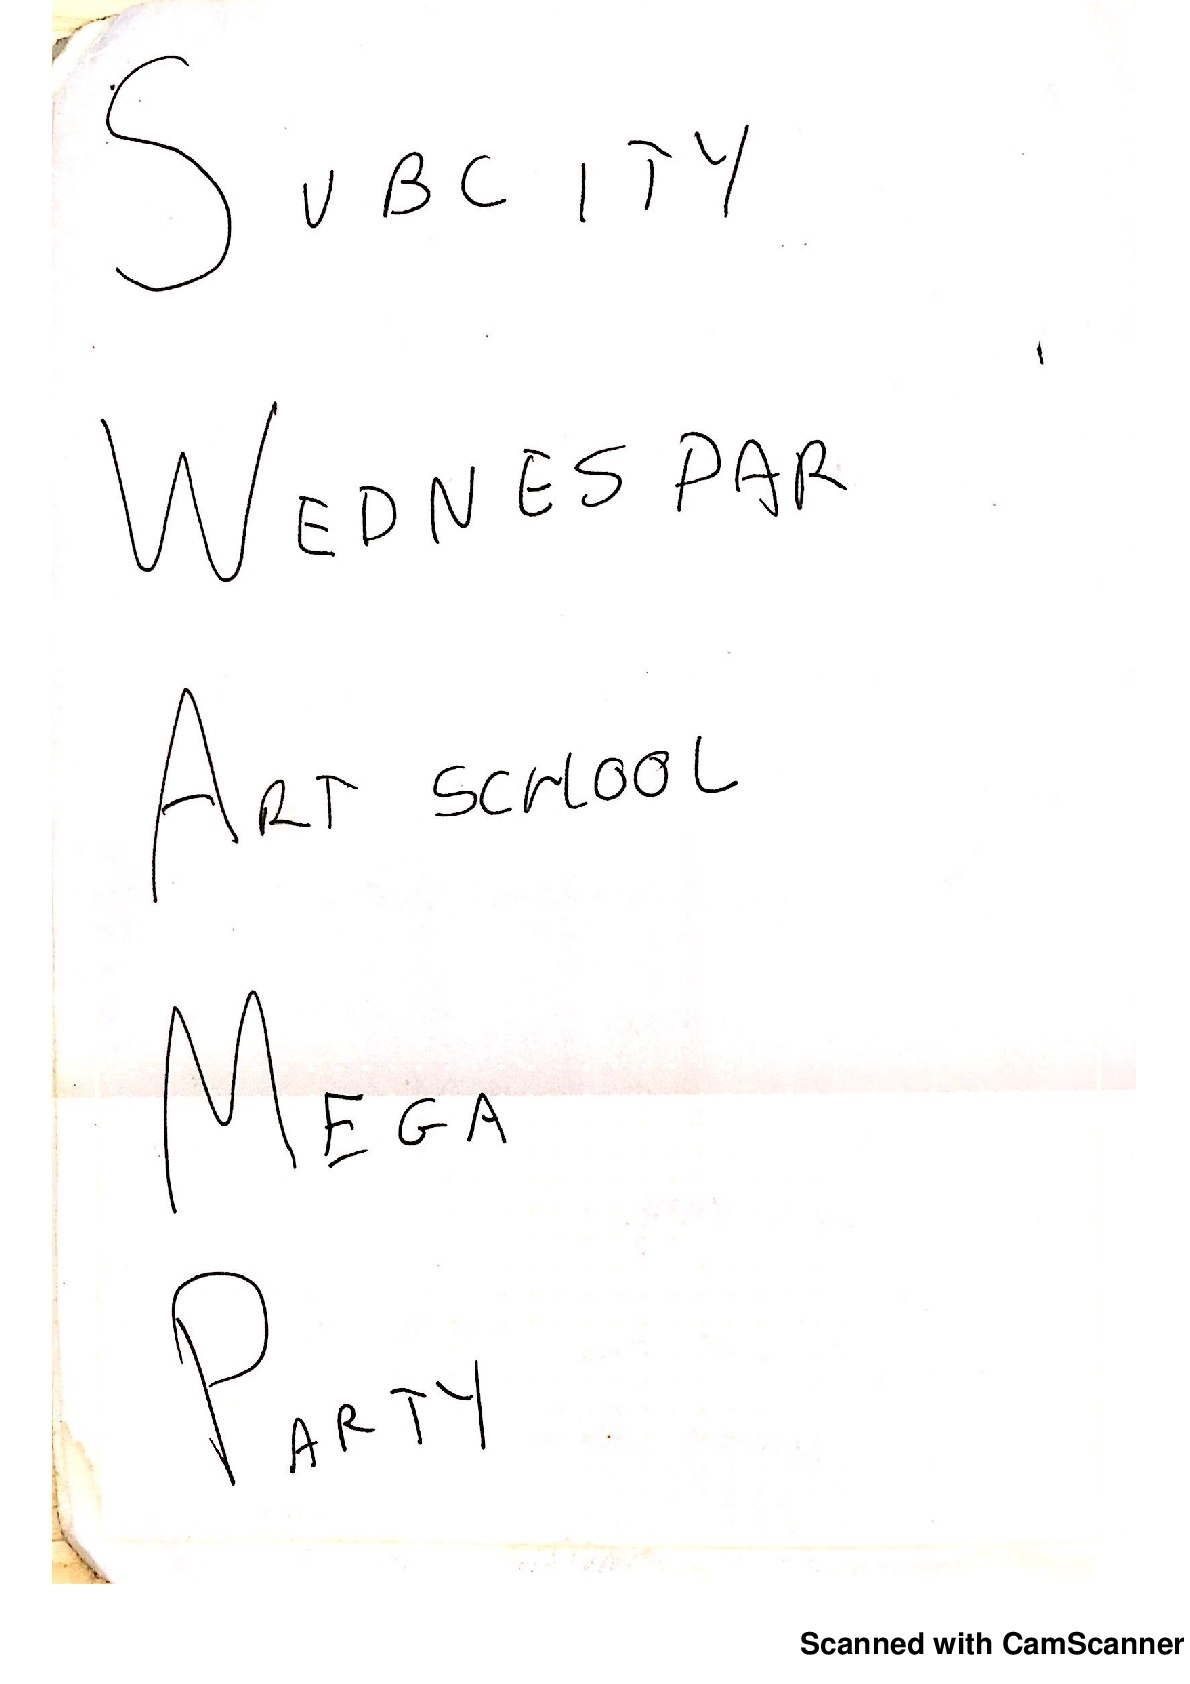 SUBCITY
WEDNESPAR
ART SCHOOL
MEGA
PARTY
Scanned with CamScanner